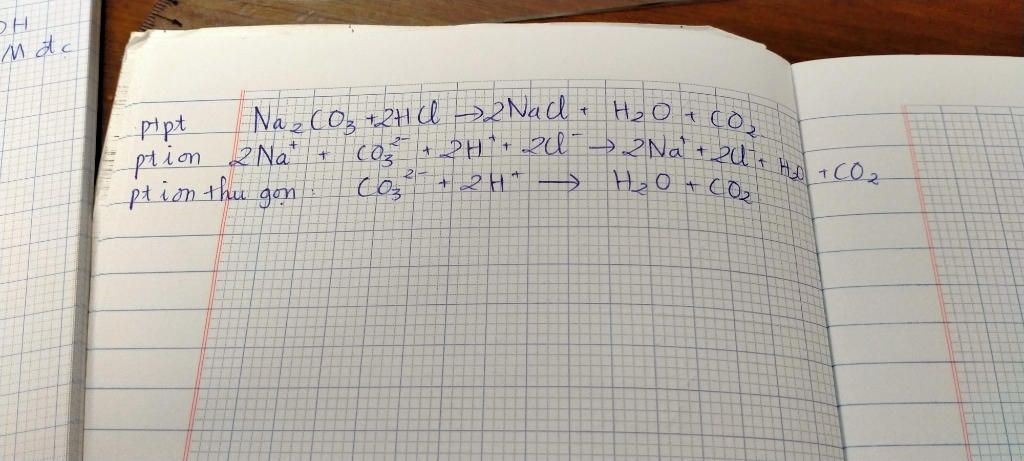 OH
M dc
ptpt Na₂CO₃ + 2HCl → 2NaCl + H₂O + CO₂
pt ion 2Na⁺ + CO₃²⁻ + 2H⁺ + 2Cl⁻ → 2Na⁺ + 2Cl⁻ + H₂O + CO₂
pt ion thu gọn : CO₃²⁻ + 2H⁺ → H₂O + CO₂